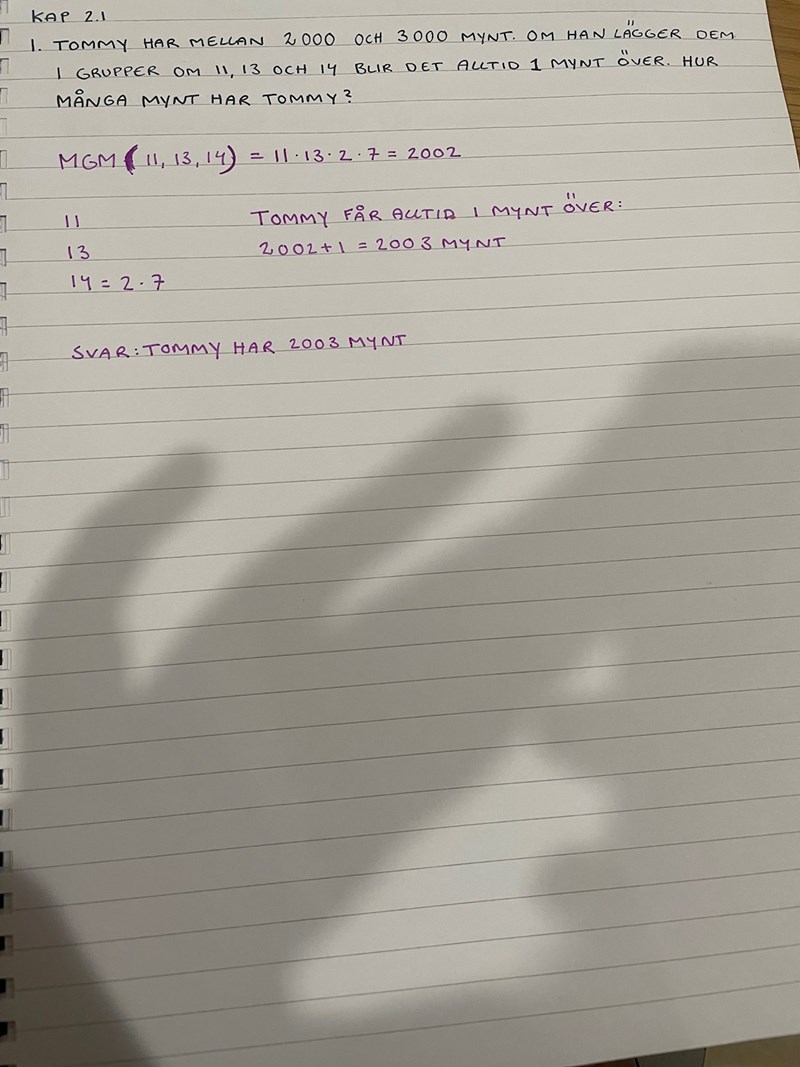 KAP 2.1
1. TOMMY HAR MELLAN 2000 OCH 3000 MYNT. OM HAN LÄGGER DEM
I GRUPPER OM 11, 13 OCH 14 BLIR DET ALLTID 1 MYNT ÖVER. HUR
MÅNGA MYNT HAR TOMMY?
MGM (11, 13, 14) = 11 · 13 · 2 · 7 = 2002
11 TOMMY FÅR ALLTID 1 MYNT ÖVER:
13 2002 + 1 = 2003 MYNT
14 = 2 · 7
SVAR: TOMMY HAR 2003 MYNT